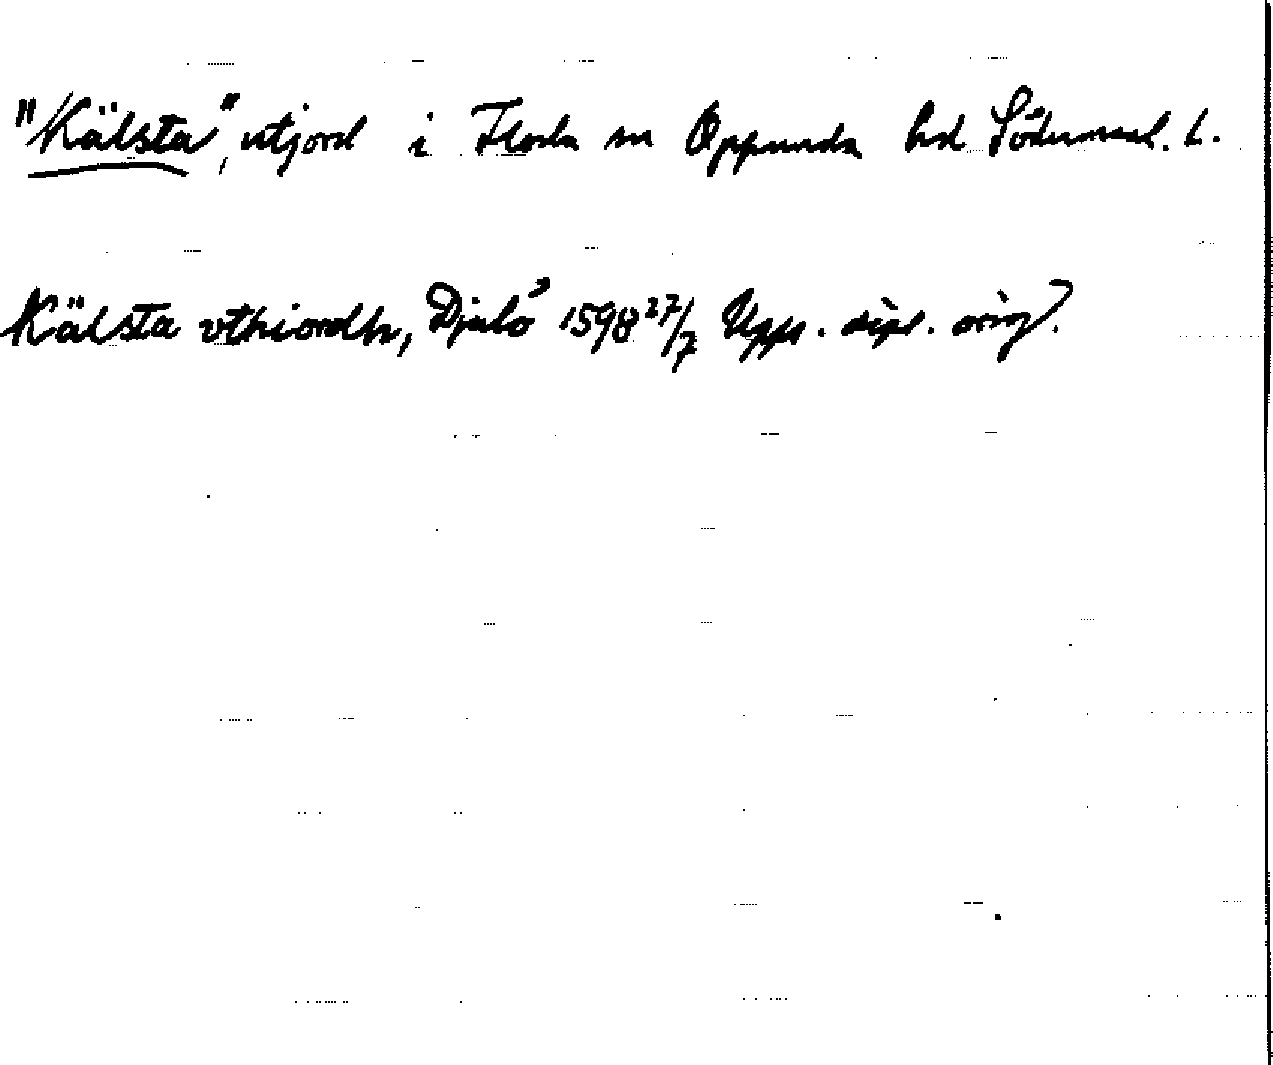 "Kälsta", utjord i Floda sn Oppunda hd Södermanl. L.
Kälsta vthiordh, Djulö 1598 27/7 Upps. dipl. orig.